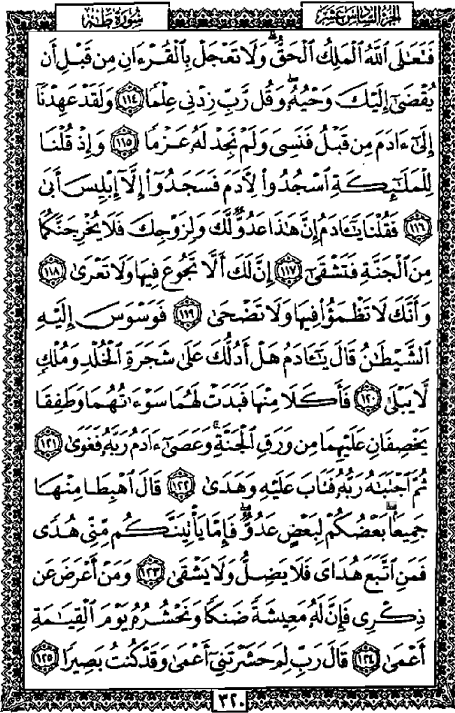 سُورَةُ طه
الجُزءُ السَّادِسَ عَشَرَ
فَتَعَٰلَى ٱللَّهُ ٱلْمَلِكُ ٱلْحَقُّ ۗ وَلَا تَعْجَلْ بِٱلْقُرْءَانِ مِن قَبْلِ أَن
يُقْضَىٰٓ إِلَيْكَ وَحْيُهُۥ ۖ وَقُل رَّبِّ زِدْنِى عِلْمًا ١١٤ وَلَقَدْ عَهِدْنَآ
إِلَىٰٓ ءَادَمَ مِن قَبْلُ فَنَسِىَ وَلَمْ نَجِدْ لَهُۥ عَزْمًا ١١٥ وَإِذْ قُلْنَا
لِلْمَلَٰٓئِكَةِ ٱسْجُدُوا۟ لِءَادَمَ فَسَجَدُوٓا۟ إِلَّآ إِبْلِيسَ أَبَىٰ
١١٦ فَقُلْنَا يَٰٓـَٔادَمُ إِنَّ هَٰذَا عَدُوٌّ لَّكَ وَلِزَوْجِكَ فَلَا يُخْرِجَنَّكُمَا
مِنَ ٱلْجَنَّةِ فَتَشْقَىٰٓ ١١٧ إِنَّ لَكَ أَلَّا تَجُوعَ فِيهَا وَلَا تَعْرَىٰ ١١٨
وَأَنَّكَ لَا تَظْمَؤُا۟ فِيهَا وَلَا تَضْحَىٰ ١١٩ فَوَسْوَسَ إِلَيْهِ
ٱلشَّيْطَٰنُ قَالَ يَٰٓـَٔادَمُ هَلْ أَدُلُّكَ عَلَىٰ شَجَرَةِ ٱلْخُلْدِ وَمُلْكٍ
لَّا يَبْلَىٰ ١٢٠ فَأَكَلَا مِنْهَا فَبَدَتْ لَهُمَا سَوْءَٰتُهُمَا وَطَفِقَا
يَخْصِفَانِ عَلَيْهِمَا مِن وَرَقِ ٱلْجَنَّةِ ۚ وَعَصَىٰٓ ءَادَمُ رَبَّهُۥ فَغَوَىٰ ١٢١
ثُمَّ ٱجْتَبَٰهُ رَبُّهُۥ فَتَابَ عَلَيْهِ وَهَدَىٰ ١٢٢ قَالَ ٱهْبِطَا مِنْهَا
جَمِيعًۢا ۖ بَعْضُكُمْ لِبَعْضٍ عَدُوٌّ ۖ فَإِمَّا يَأْتِيَنَّكُم مِّنِّى هُدًى
فَمَنِ ٱتَّبَعَ هُدَاىَ فَلَا يَضِلُّ وَلَا يَشْقَىٰ ١٢٣ وَمَنْ أَعْرَضَ عَن
ذِكْرِى فَإِنَّ لَهُۥ مَعِيشَةً ضَنكًا وَنَحْشُرُهُۥ يَوْمَ ٱلْقِيَٰمَةِ
أَعْمَىٰ ١٢٤ قَالَ رَبِّ لِمَ حَشَرْتَنِىٓ أَعْمَىٰ وَقَدْ كُنتُ بَصِيرًا ١٢٥
٣٢٠